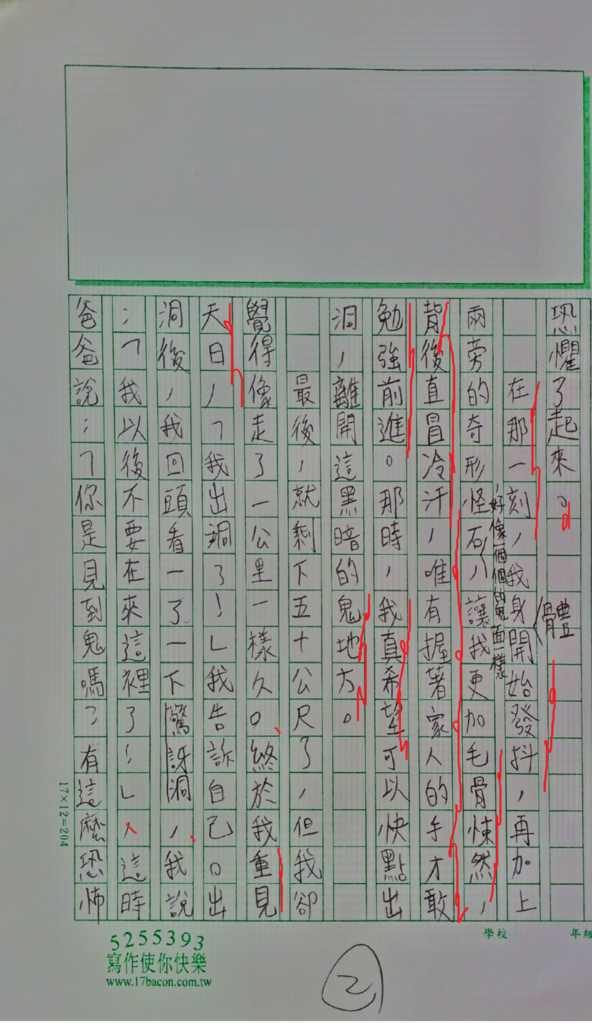 恐懼了起來。
在那一刻，我身體開始發抖，再加上
兩旁的奇形怪石，好像個個的鬼面一樣，讓我更加毛骨悚然，
背後直冒冷汗，唯有握著家人的手才敢
勉強前進。那時，我真希望可以快點出
洞，離開這黑暗的鬼地方。
最後，就剩下五十公尺了，但我卻
覺得像走了一公里一樣久。終於我重見
天日，「我出洞了！」我告訴自己。出
洞後，我回頭看一了一下驚訝洞，我說
：「我以後不要在來這裡了！」這時
爸爸說：「你是見到鬼嗎？有這麼恐怖
17×12=204
學校
年級
5255393
寫作使你快樂
www.17bacon.com.tw
2